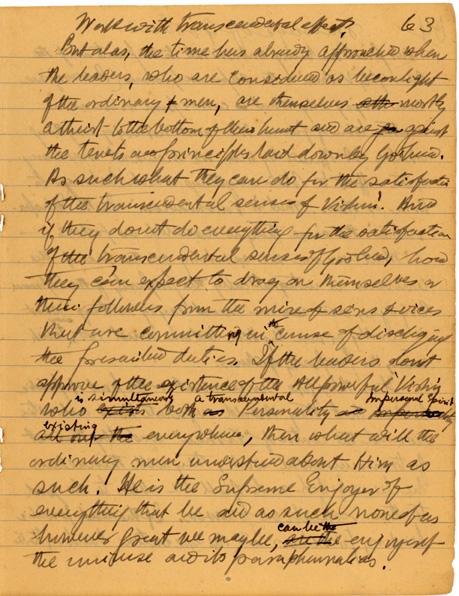 Work with transcendental effect? 63
But alas, the time has already approached when
the leaders, who are considered as beconlight
of the ordinary men, are themselves mostly
atheist to the bottom of their heart and are against
the tenets and principles laid down by Godhead.
As such what they can do for the satisfaction
of the transcendental senses of Vishnu. And
if they don't do everything for the satisfaction
of the transcendental senses of Godhead, how
they can expect to drag on themselves or
their followers from the mire of sins & vices
they are committing in the cause of discharging
the prescribed duties. If the leaders don't
approve of the existence of the All powerful Vishnu
who is simultaneously both a transcendental Personality Impersonal Spirit
existing everywhere, then what will the
ordinary men understand about Him as
such! He is the Supreme Enjoyer of
everything that be and as such none of us
however great we may be, can be the enjoyer of
the universe and its paraphernalias.